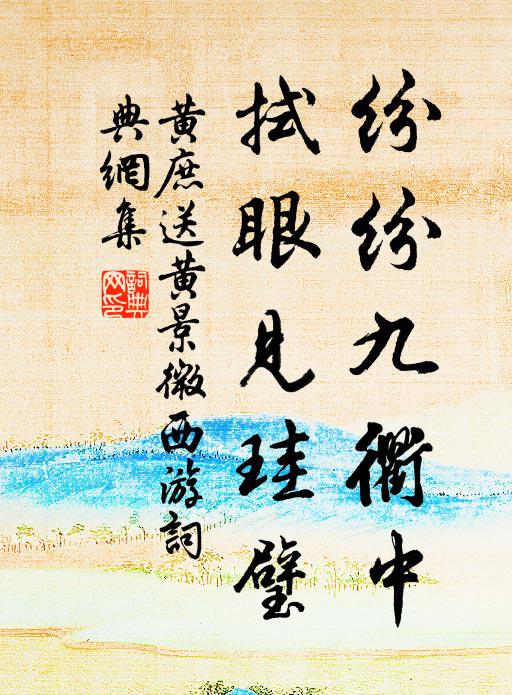 紛紛九衢中
拭眼見珪璧
黃庶送黃景微西游詞
典網集
詞典網印